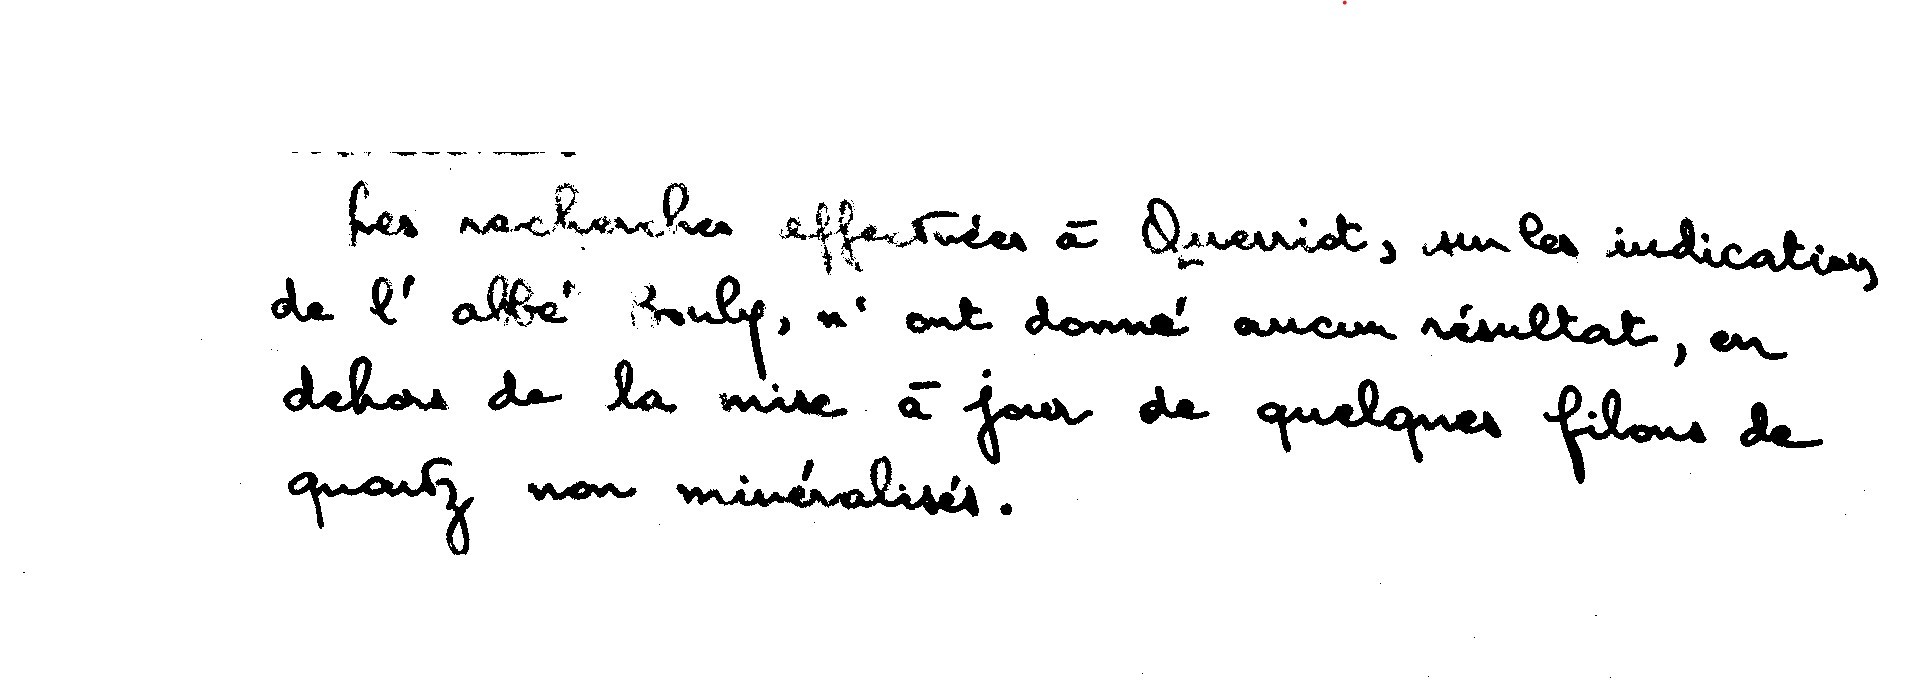 Les recherches effectuées à Querriot, sur les indications
de l'abbé Bouly, n'ont donné aucun résultat, en
dehors de la mise à jour de quelques filons de
quartz non minéralisés.